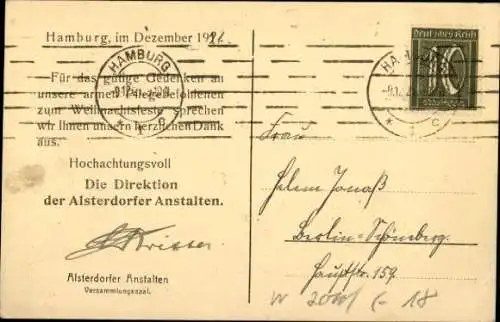 Hamburg, im Dezember 1921.
Für das gütige Gedenken an
unsere armen Pflegebefohlenen
zum Weihnachtsfeste sprechen
wir Ihnen unsern herzlichen Dank
aus.
Hochachtungsvoll
Die Direktion
der Alsterdorfer Anstalten.
Alsterdorfer Anstalten
Versammlungssaal.
HAMBURG
1 c
Deutsches Reich
10
HAMBURG
* 1 c
Frau
Helene Jonaß
Berlin-Schöneberg.
Hauptstr. 159.